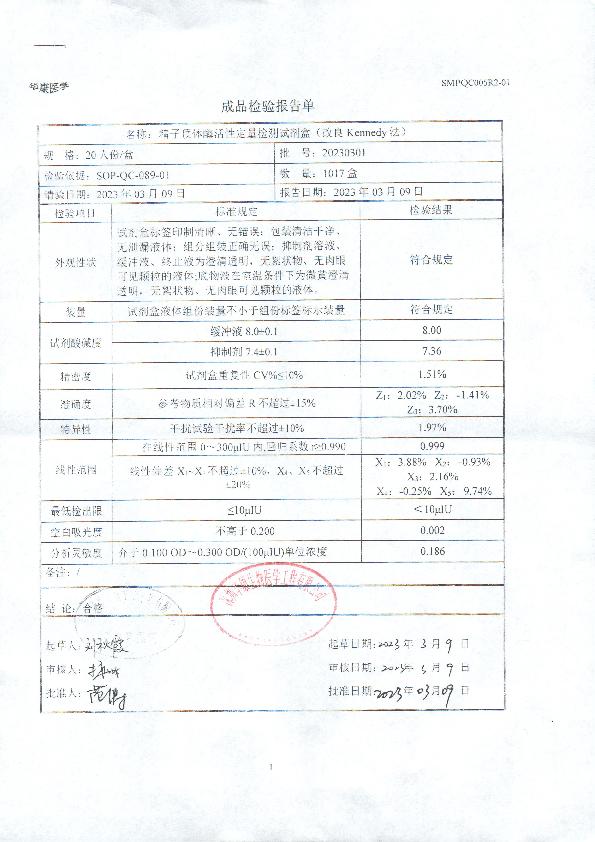 华康医学
SMPQC005R2-01
成品检验报告单
名称：精子顶体酶活性定量检测试剂盒（改良 Kennedy 法）
规 格：20 人份/盒 批 号：20230301
检验依据：SOP-QC-089-01 数 量：1017 盒
请验日期：2023 年 03 月 09 日 报告日期：2023 年 03 月 09 日
检验项目 标准规定 检验结果
外观性状
试剂盒标签印制清晰、无错误；包装清洁干净、
无泄漏液体；组分组装正确无误；抑制剂溶液、
缓冲液、终止液为澄清透明，无絮状物、无肉眼
可见颗粒的液体;底物液在室温条件下为微黄澄清
透明，无絮状物、无肉眼可见颗粒的液体。
符合规定
装量 试剂盒液体组份装量不小于组份标签标示装量 符合规定
试剂酸碱度
缓冲液 8.0±0.1 8.00
抑制剂 7.4±0.1 7.36
精密度 试剂盒重复性 CV%≤10% 1.51%
准确度 参考物质相对偏差 R 不超过±15%
Z₁：2.02% Z₂：-1.41%
Z₃：3.70%
特异性 干扰试验干扰率不超过±10% 1.97%
线性范围
在线性范围 0～300μIU 内,回归系数 r≥0.990 0.999
线性偏差 X₁~X 不超过±10%，X₄、X₅不超过
±20%
X₁：3.88% X₂：-0.93%
X₃：2.16%
X₄：-0.25% X₅：9.74%
最低检出限 ≤10μIU ＜10μIU
空白吸光度 不高于 0.200 0.002
分析灵敏度 介于 0.100 OD～0.300 OD/(100μIU)单位浓度 0.186
备注：/
结 论：合格
起草人： 起草日期：2023 年 3 月 9 日
审核人： 审核日期：2023 年 3 月 9 日
批准人： 批准日期：2023 年 03 月 09 日
1